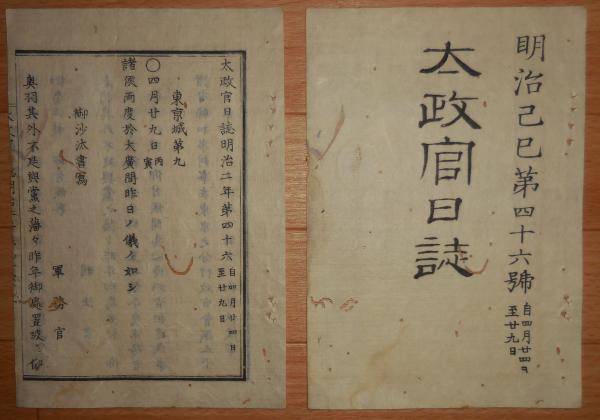 明治己巳第四十六號 自四月廿四日至廿九日
太政官日誌
太政官日誌明治二年第四十六 自四月廿四日至廿九日
東京城第九
〇四月廿九日丙寅
諸侯両度於大廣間昨日ノ儀々如シ
御沙汰書寫
軍務官
奥羽其外不廷與黨之藩々昨年御處置被 仰